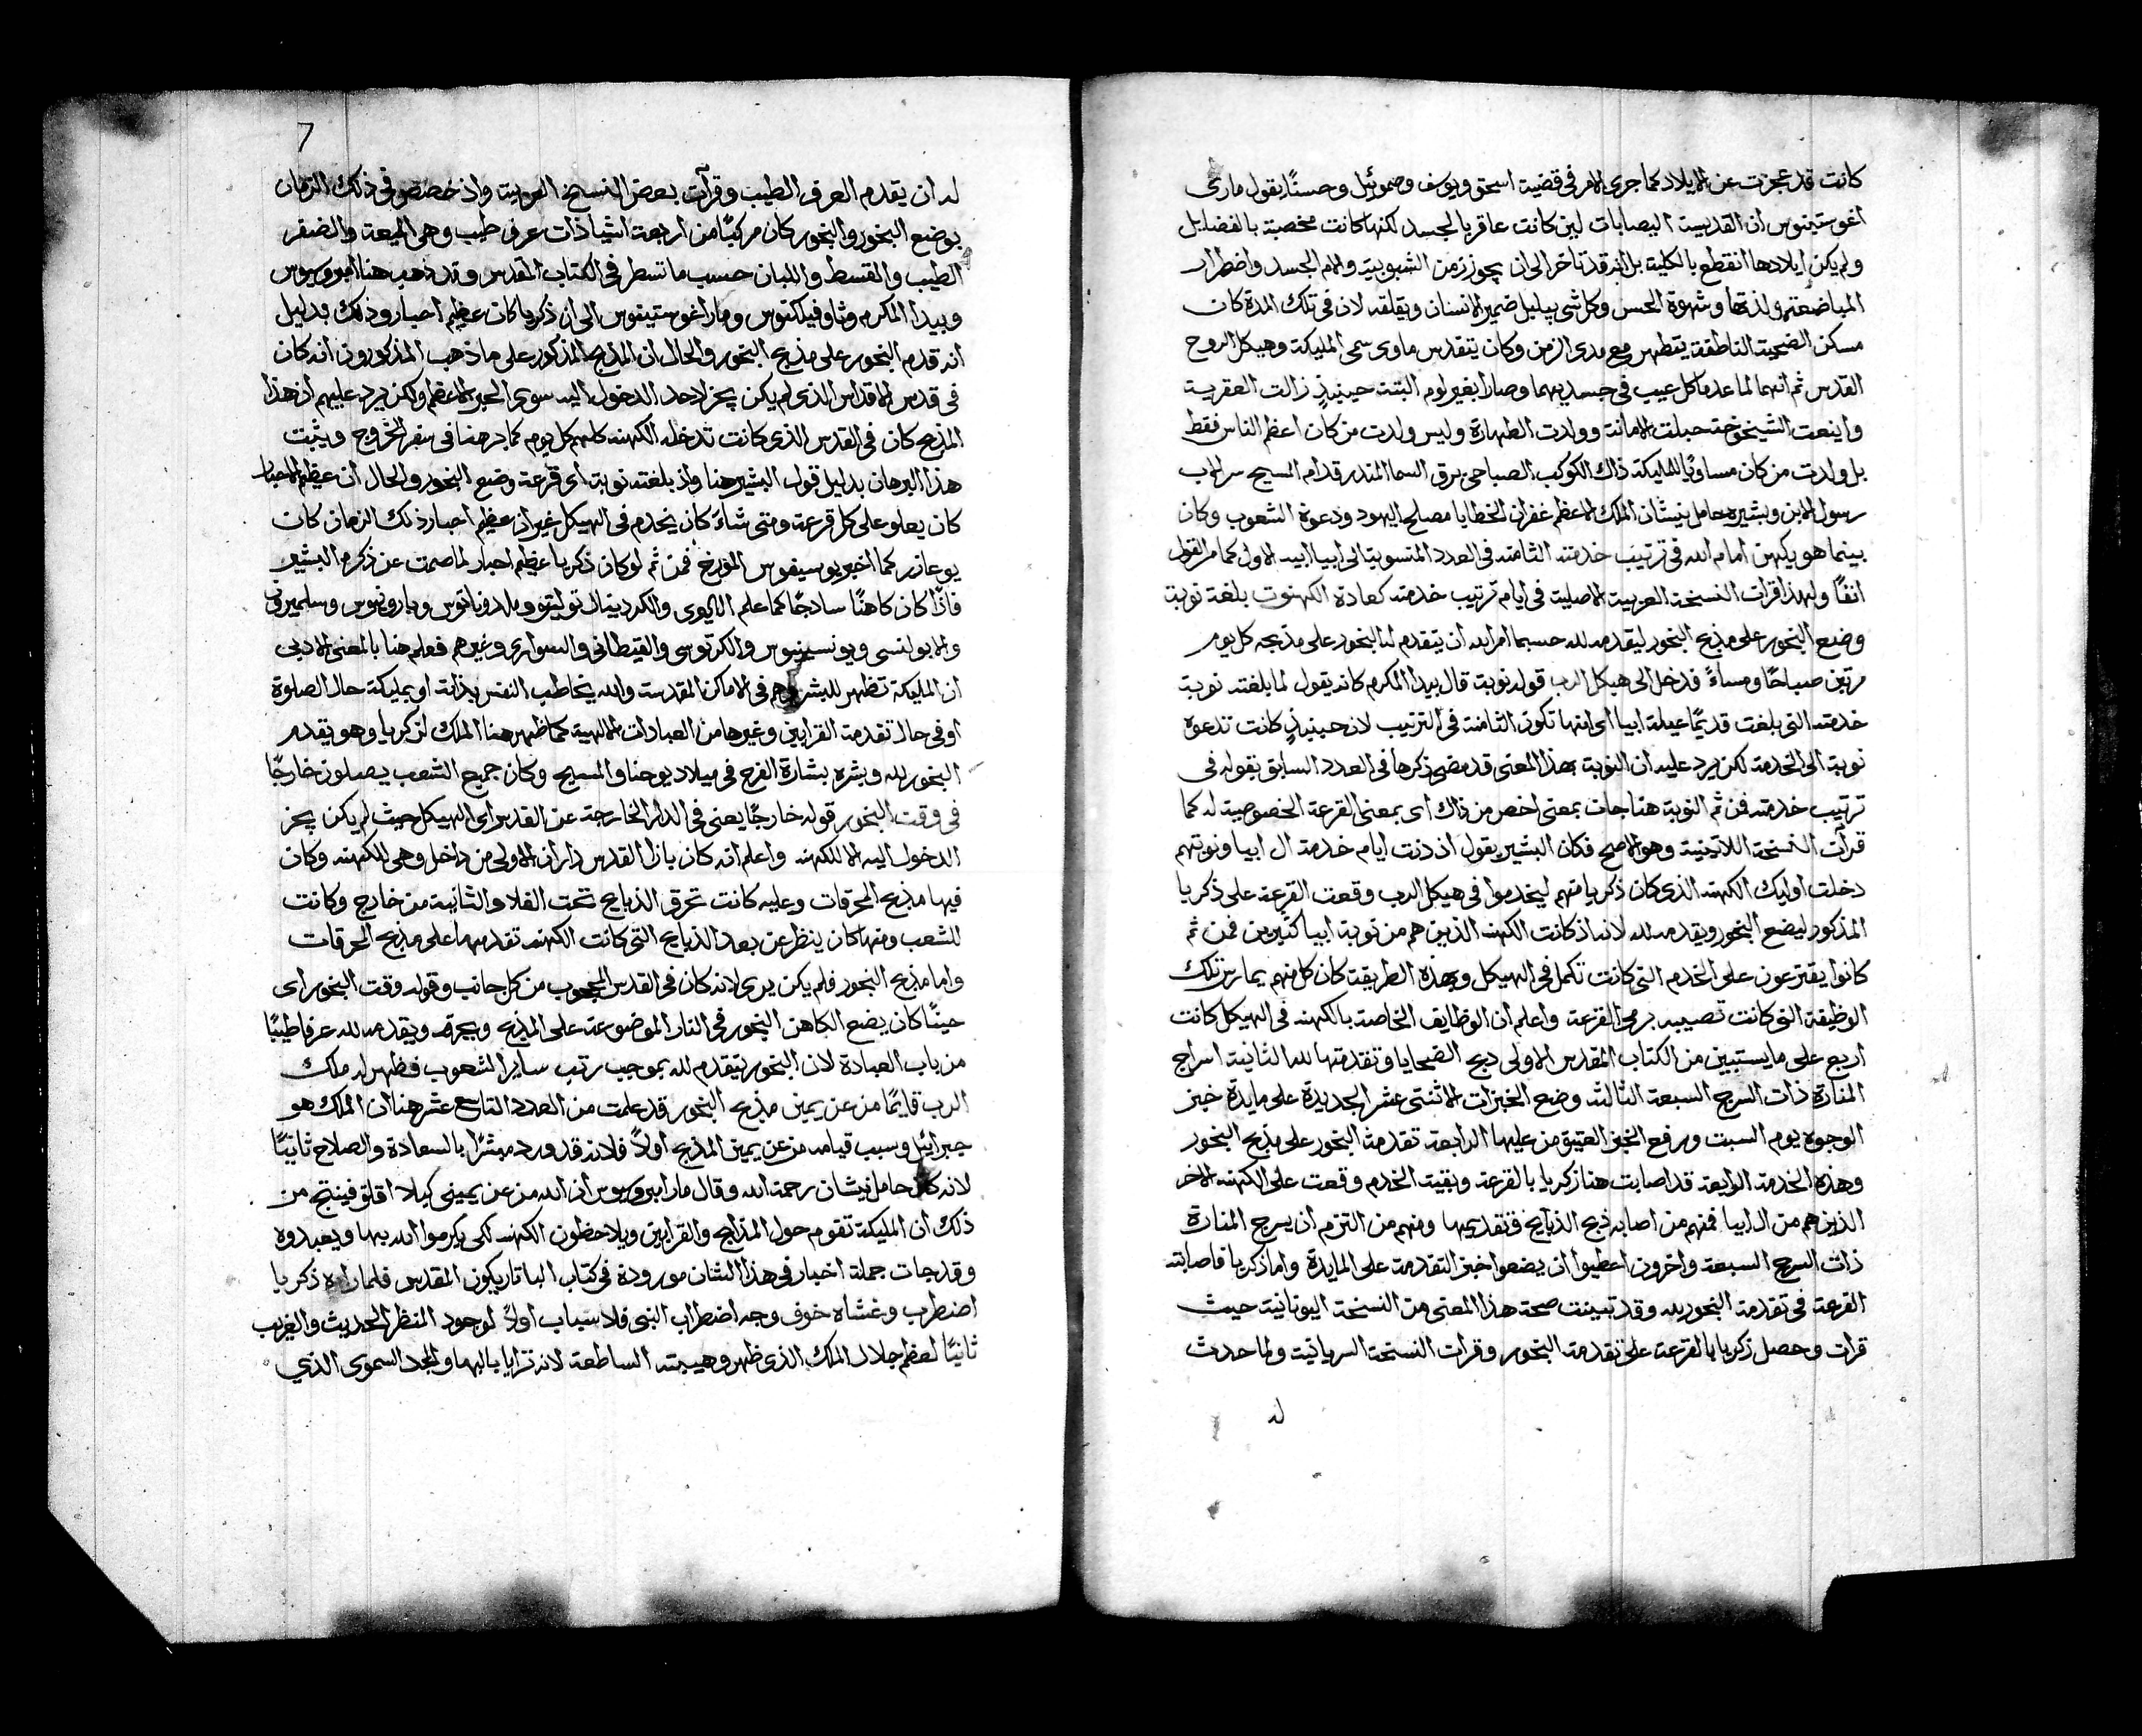 كانت قد عجزت عن الايلاد كما جرى الامر في قضية اسحق ويوسف وصموئيل وحسنًا يقول ماري
اغوستينوس ان القديسة اليصابات لين كانت عاقر بالجسد لكنها كانت مخصبة بالفضايل
ولم يكن ايلادها انقطع بالكلية بل انه قد تاخر الى ان يجوز زمن الشبوبية والام الجسد واضطرار
المباضعة ولذتها وشهوة الحس وكل شي يبلبل ضمير الانسان ويقلقه لان في تلك المدة كان
مسكن الضحية الناطقة يتطهر مع مدى الزمن وكان يتقدس ماوى سمى المليكة وهيكل الروح
القدس ثم انهما لما عدما كل عيب في جسديهما وصارا بغير لوم البتة حينيذٍ زالت العقرية
واينعت الشيخوخة حبلت الامانة وولدت الطهارة وليس ولدت من كان اعظم الناس فقط
بل ولدت من كان مساويًا للمليكة ذاك الكوكب الصباحي برق السما المنذر قدام المسيح سر الاب
رسول الابن وبشيره حامل نيشان الملك الاعظم غفران الخطايا مصلح اليهود ودعوة الشعوب وكان
بينما هو يكهن امام الله في ترتيب خدمته الثامنة في العدد المنسوبة الى ابيا ابيه الاول كما مر القول
انفًا ولهذا قرات النسخة العربية الاصلية في ايام ترتيب خدمته كعادة الكهنوت بلغته نوبة
وضع البخور على مذبح البخور ليقدمه لله حسبما امر الله ان يتقدم لنا البخور على مذبحه كل يوم
مرتين صباحًا ومساءً فدخل الى هيكل الرب قوله نوبة قال بيدا المكرم كانه يقول لما بلغته نوبة
خدمته التي بلغت قديمًا عيلة ابيا اى انها تكون الثامنة في الترتيب لان حينيذٍ كانت تدعوه
نوبة الى الخدمة لكن يرد عليه ان النوبة بهذا المعنى قد مضى ذكرها في العدد السابق بقوله في
ترتيب خدمته فمن ثم النوبة هنا جات بمعنى اخص من ذاك اى بمعنى القرعة الخصوصية له كما
قرآت النسخة اللاتينية وهو الاصح فكان البشير يقول اذ دنت ايام خدمة ال ابيا ونوبتهم
دخلت اوليك الكهنة الذى كان زكريا منهم ليخدموا في هيكل الرب وقعت القرعة على زكريا
المذكور ليضع البخور ويقدمه لله لانه اذ كانت الكهنة الذين هم من نوبة ابيا كثيرين فمن ثم
كانوا يقترعون على الخدم التي كانت تكمل في الهيكل وبهذه الطريقة كان كل منهم يمارس تلك
الوظيفة التي كانت تصيبه برمي القرعة واعلم ان الوظايف الخاصة بالكهنة في الهيكل كانت
اربع على ما يستبين من الكتاب المقدس الاولى ذبح الضحايا وتقدمتها لله الثانية اسراج
المنارة ذات السرج السبعة الثالثة وضع الخبزات الاثنتى عشر الجديدة على مايدة خبز
الوجوه يوم السبت ورفع الخبز العتيق من عليها الرابعة تقدمة البخور على مذبح البخور
وهذه الخدمة الرابعة قد اصابت هنا زكريا بالقرعة وبقيت الخدم وقعت على الكهنة الاخر
الذين هم من ال ابيا فمنهم من اصابه ذبح الذبايح وتقديمها ومنهم من التزم ان يسرج المنارة
ذات السرج السبعة واخرون اعطيوا ان يضعوا خبز التقدمة على المايدة واما زكريا فاصابته
القرعة في تقدمة البخور لله وقد تبينت صحة هذا المعنى من النسخة اليونانية حيث
قرات وحصل زكريا بالقرعة على تقدمة البخور وقرات النسخة السريانية ولما حدث
له
7
له ان يقدم العرف الطيب وقرآت بعض النسخ العربية واذ خصص في ذلك الزمان
بوضع البخور والبخور كان مركبًا من اربعة اشيا ذات عرف طيب وهى الميعة والضفر
الطيب والقسط واللبان حسب ما تسطر في الكتاب المقدس وقد ذهب هنا امبروسيوس
وبيدا المكرم وثاوفيلكتوس ومار اغوستينوس الى ان زكريا كان عظيم احبار وذلك بدليل
انه قدم البخور على مذبح البخور والحال ان المذبح المذكور على ما ذهب المذكورون انه كان
في قدس الاقداس الذى لم يكن يجز لاحد الدخول اليه سوى الحبر الاعظم ولكن يرد عليهم ان هذا
المذبح كان في القدس الذى كانت تدخله الكهنة كلهم كل يوم كما برهنا في سفر الخروج ويثبت
هذا البرهان بدليل قول البشير هنا واذ بلغته نوبة اى قرعة وضع البخور والحال ان عظيم الاحبار
كان يعلو على كل قرعة ومتى شاءَ كان يخدم في الهيكل غير ان عظيم احبار ذلك الزمان كان
يوعازر كما اخبر يوسيفوس المؤرخ فمن ثم لو كان زكريا عظيم احبار لما صمت عن ذكره البشير
فاذًا كان كاهنًا ساذجًا كما علم الاليوى والكردينال توليتو وملدوناتوس وبارونيوس وسلميرون
والابولنسى ويونسينيوس والكرتوسى والقيطانى والسوارى وغيرهم فعلم هنا بالمعنى الادبى
ان المليكة تظهر للبشر وهم في الاماكن المقدسة والله يخاطب النفس بذاته او بمليكته حال الصلوة
او في حال تقدمة القرابين وغيرها من العبادات الالهية كما ظهر هنا الملك لزكريا وهو يقدم
البخور لله وبشره بشارة الفرح في ميلاد يوحنا والمسيح وكان جميع الشعب يصلون خارجًا
في وقت البخور قوله خارجًا يعنى في الدار الخارجة عن القدس اى الهيكل حيث لم يكن يجز
الدخول اليه الا للكهنة واعلم انه كان بازا القدس داران الاولى من داخل وهى للكهنة وكان
فيها مذبح المحرقات وعليه كانت تحرق الذبايح تحت الفلا والثانية من خارج وكانت
للشعب ومنها كان ينظر عن بعد الذبايح التي كانت الكهنة تقدمها على مذبح الحرقات
واما مذبح البخور فلم يكن يرى لانه كان في القدس المحجوب من كل جانب وقوله وقت البخور اى
حينًا كان يضع الكاهن البخور في النار الموضوعة على المذبح ويحرقه ويقدمه لله عرفا طيبًا
من باب العبادة لان البخور يتقدم لله بموجب رتب ساير الشعوب فظهر له ملك
الرب قايمًا من عن يمين مذبح البخور قد علمت من العدد التاسع عشر هنا ان الملك هو
جبرائيل وسبب قيامه من عن يمين المذبح اولاً فلانه قد ورد مبشرًا بالسعادة والصلاح ثانيًا
لانه كان حامل نيشان رحمة الله وقال مار امبروسيوس ان الله من عن يمينى كيلا اقلق فينتج من
ذلك ان المليكة تقوم حول المذابح والقرابين ويلاحظون الكهنة لكى يكرموا الله بها ويعبدوه
وقد جات جملة اخبار في هذا الشان مورودة في كتاب الباتاريكون المقدس فلما راه زكريا
اضطرب وغشاه خوف وجه اضطراب النبى فلاسباب اولاً لوجود المنظر الحديث والغريب
ثانيًا لعظم جلال الملك الذى ظهر وهيبته الساطعة لانه ترايا بالبها والمجد السموى الذي